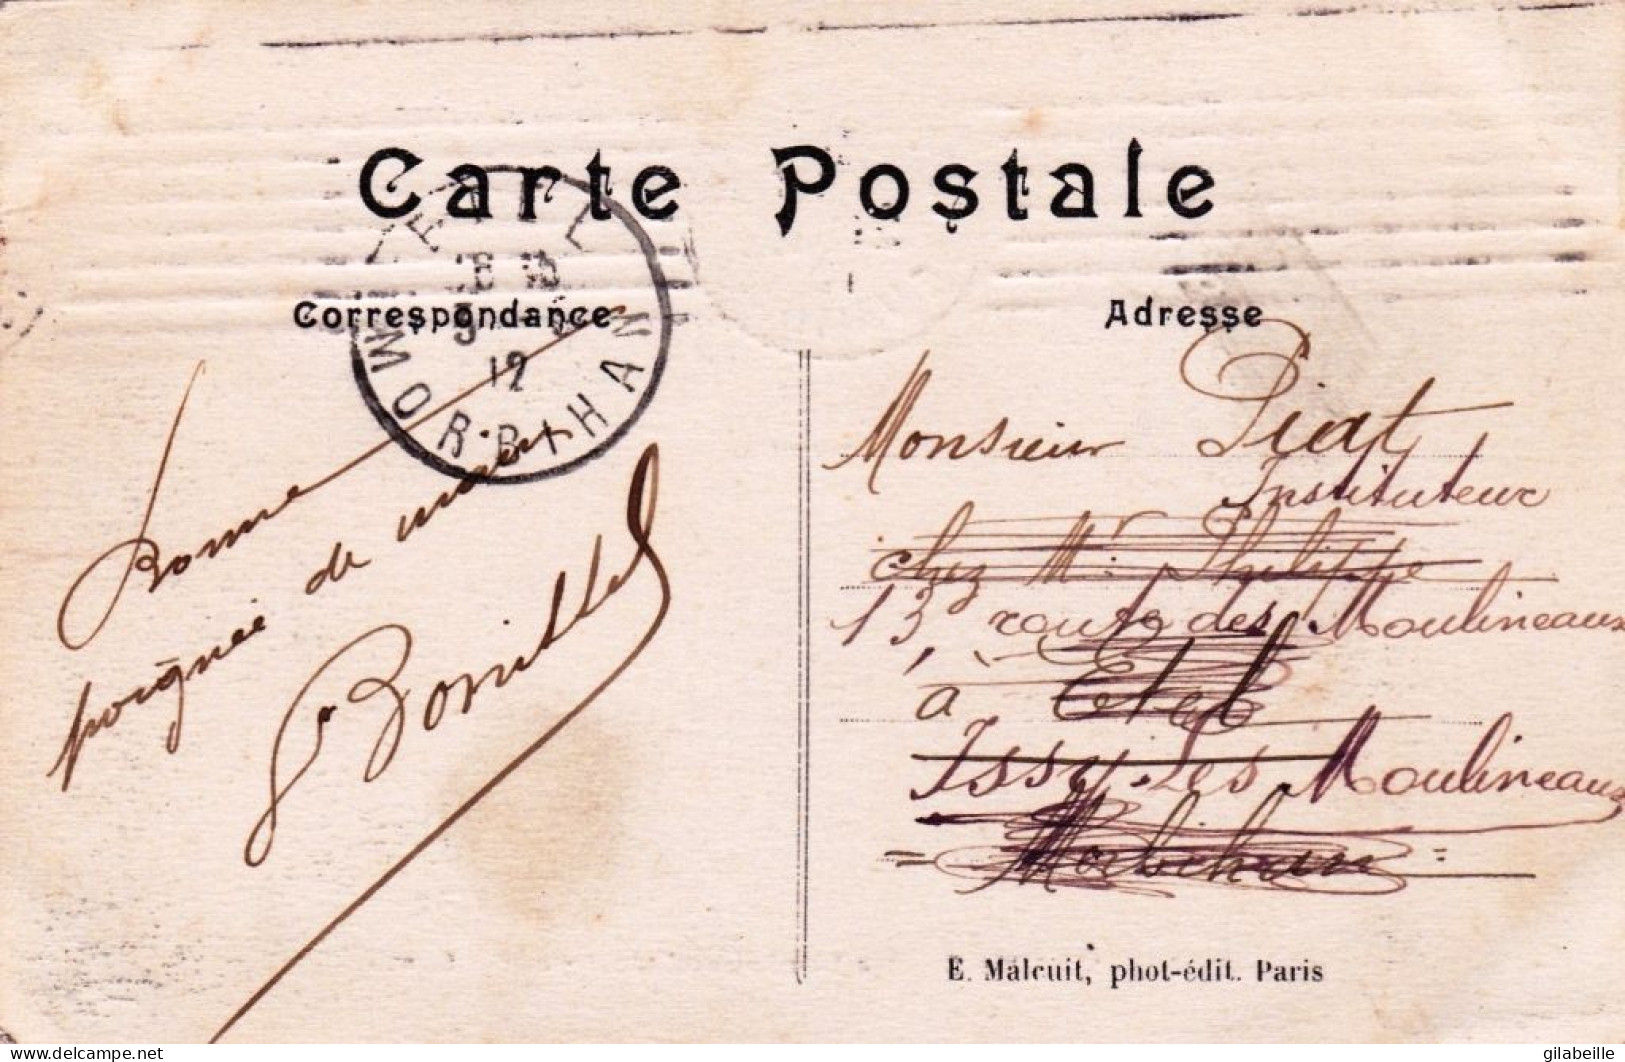 Carte Postale
Correspondance
Adresse
ETEL
12
MORBIHAN
Bonne
poignée de main
Monsieur Piat
Instituteur
chez Mr. Philippe
13, route des Moulineaux
à Etel
Issy-Les Moulineaux
= Morbihan =
E. Malcuit, phot-édit. Paris
delcampe.net
gilabeille